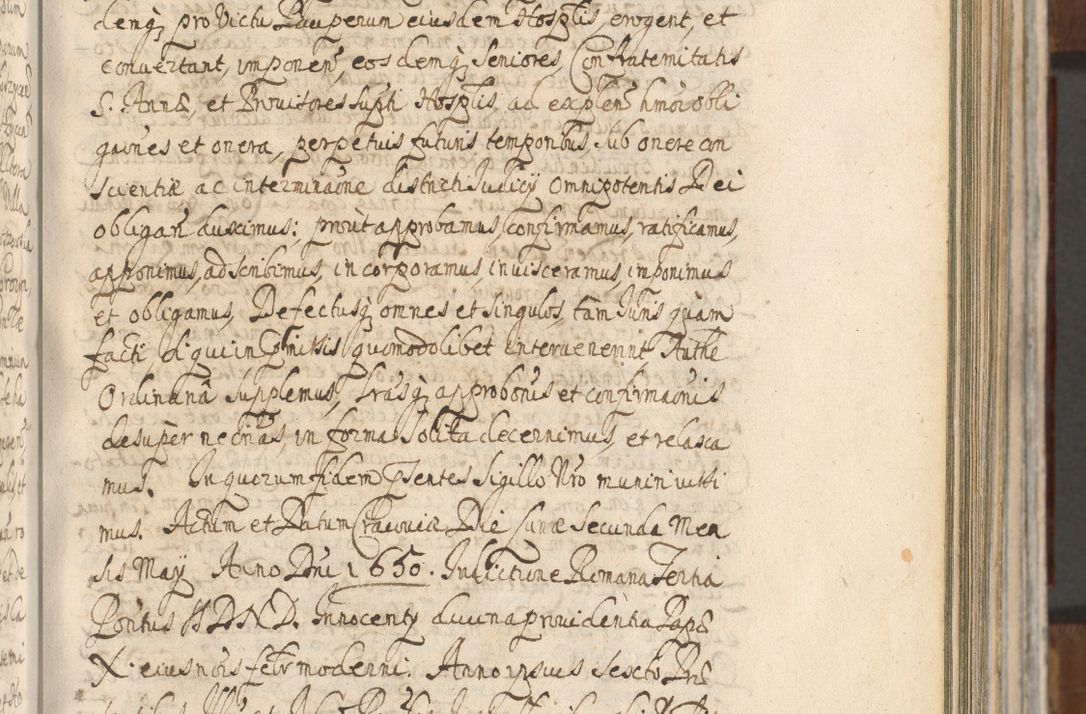 demq, pro Victu Pauperum eiusdem Hosplis, erogent, et
convertant, imponen, eosdemq, Seniores, Confraternitatis
S. Annæ, et Provisores supti Hosplis ad explen hmoi obli
gaones et onera, perpetuis futuris temporibus, sub onere con
scientiæ ac interminaone districti Judicij Omnipotentis Dei
obligan duximus: prout approbamus, confirmamus, ratificamus,
apponimus, adscribimus, incorporamus, invisceramus, imponimus
et obligamus, Defectusq, omnes et singulos, tam Juris quam
facti, si qui in pmissis quomodolibet intervenerint, Authe
Ordinaria supplemus, lrasq, approbonis et confirmaonis
desuper necrias, in forma solita decernimus, et relaxa
mus. In quorum fidem psentes sigillo Nro muniri iussi
mus. Actum et Datum Cracoviæ Die Lunæ Secunda Men
sis May Anno Dni 1650. Indictione Romana Tertia
Pontus SSDND. Innocenty divina providentia Papæ
X. eius nois felr moderni. Anno ipsius Sexto. Pntibus